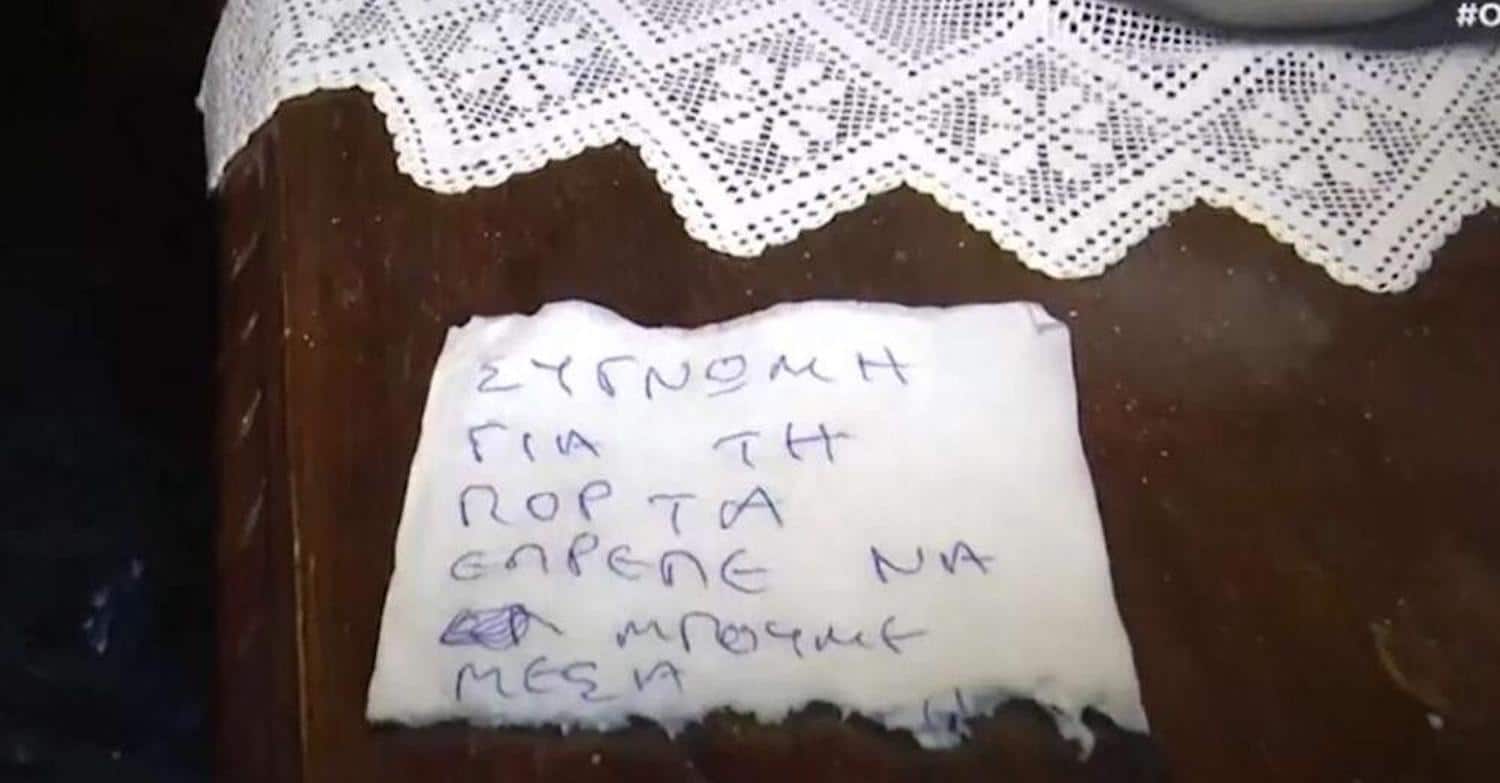 #O
ΣΥΓΝΩΜΗ
ΓΙΑ ΤΗ
ΠΟΡΤΑ
ΕΠΡΕΠΕ ΝΑ
ΜΠΟΥΜΕ
ΜΕΣΑ